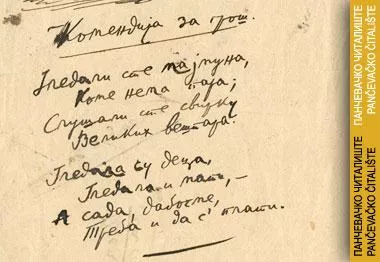 Комендија за грош.
Гледали сте мајмуна,
Коме нема пара;
Слушали сте свирку
Великих вештара.
Гледала су деца,
Гледала и мати, –
А сада, дабоме,
Треба и да с' плати.
ПАНЧЕВАЧКО ЧИТАЛИШТЕ
PANČEVAČKO ČITALIŠTE
ПАНЧЕВАЧКО ЧИТАЛИШТЕ
PANČEVAČKO ČITALIŠTE